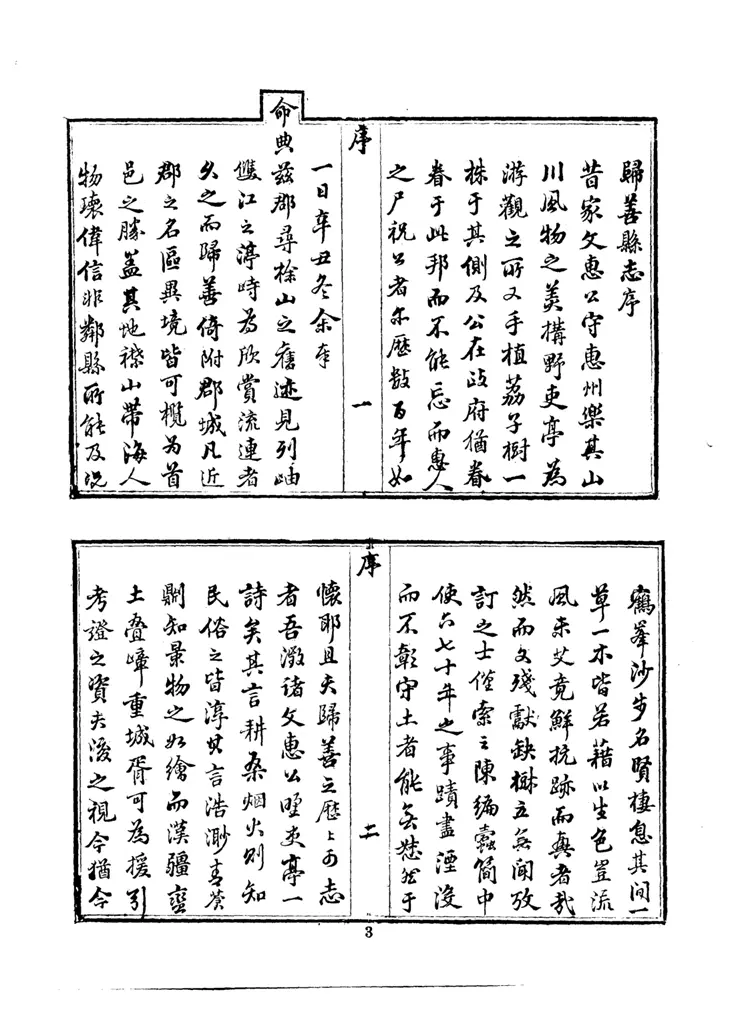 歸善縣志序
昔家文惠公守惠州樂其山
川風物之美搆野吏亭為
游觀之所又手植荔子樹一
株于其側及公在政府猶眷
眷于此邦而不能忘而惠人
之尸祝公者亦歷數百年如
序
一
一日辛丑冬余奉
命典茲郡尋揜山之舊迹見列岫
雙江之渟峙為欣賞流連者
久之而歸善倚附郡城凡近
郡之名區異境皆可攬為首
邑之勝蓋其地襟山帶海人
物瓌偉信非鄰縣所能及況
鶴峯沙步名賢棲息其間一
草一木皆若藉以生色豈流
風未艾竟鮮抗跡而興者哉
然而文殘獻缺椒五無聞攷
訂之士僅索之陳編蠹簡中
使六七十年之事蹟盡湮沒
而不彰守土者能無愁然于
序
二
懷耶且夫歸善之歷歷可志
者吾徵諸文惠公野吏亭一
詩矣其言耕桑烟火則知
民俗之皆淳其言浩渺青蒼
則知景物之如繪而漢疆蠻
土疊嶂重城胥可為援引
考證之資夫後之視今猶今
3